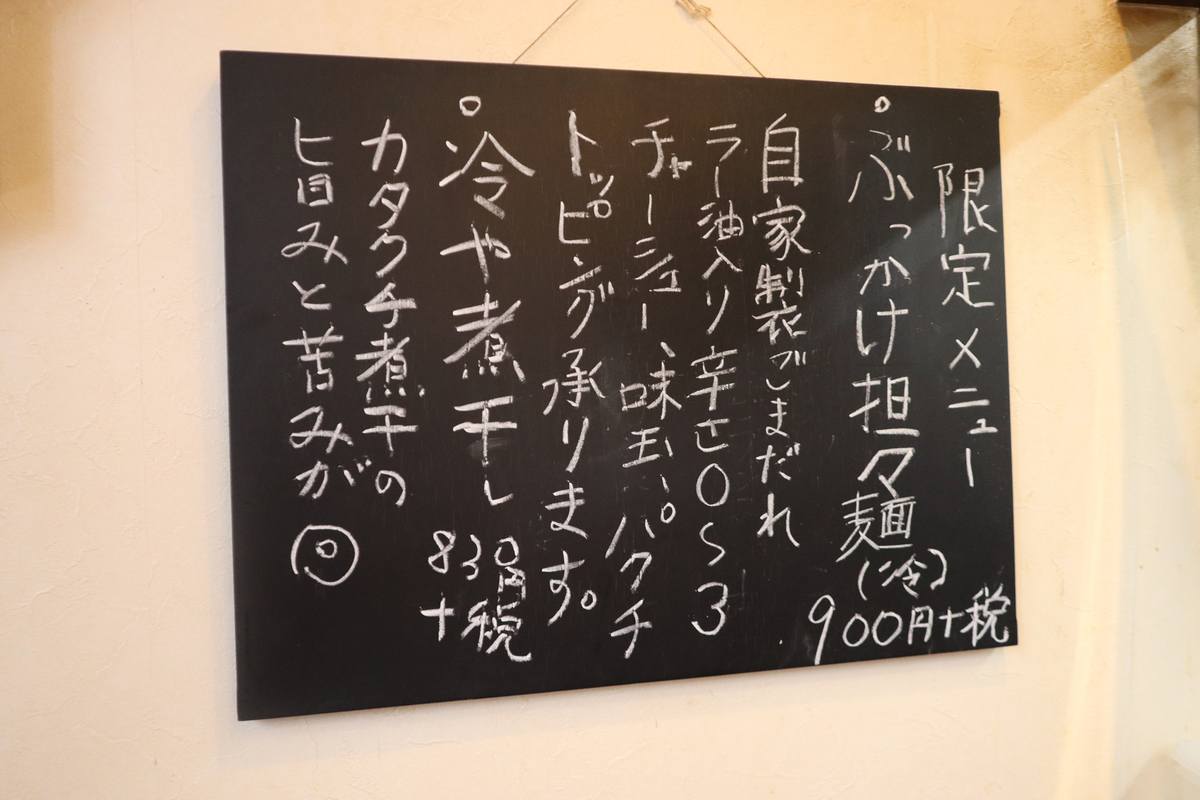 限定メニュー
○ぶっかけ担々麺(冷)
900円+税
自家製ごまだれ
ラー油入り辛さ0〜3
チャーシュー、味玉、パクチ
トッピング承ります。
○冷や煮干し
830円
+税
カタクチ煮干の
旨みと苦みが◎